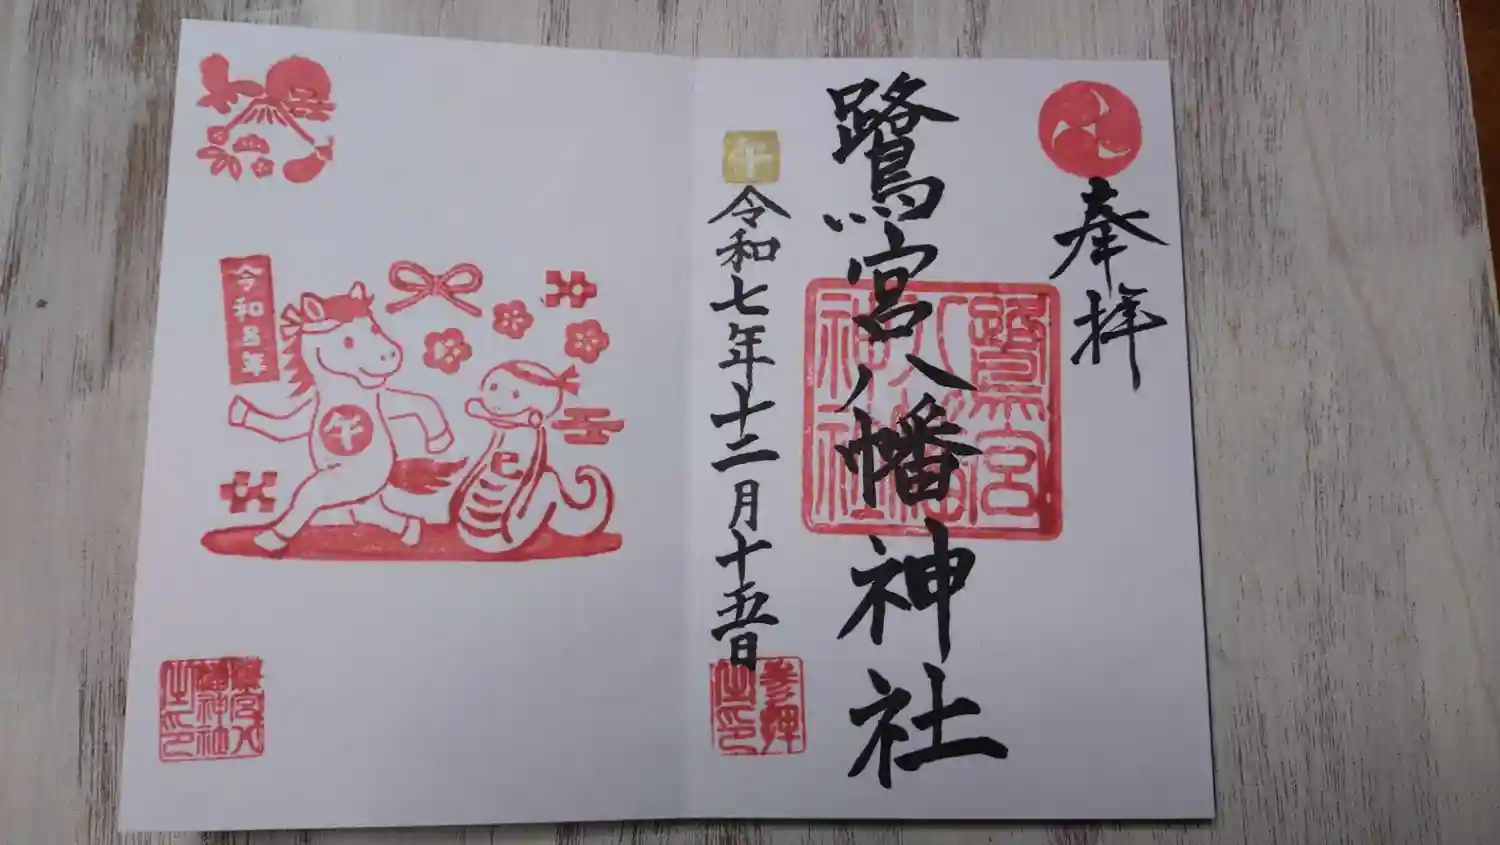 奉拝
鷺宮八幡神社
鷺宮
八幡
神社
午
令和七年十二月十五日
参拝
之印
令和8年
午
巳
鷺宮八
幡神社
之印